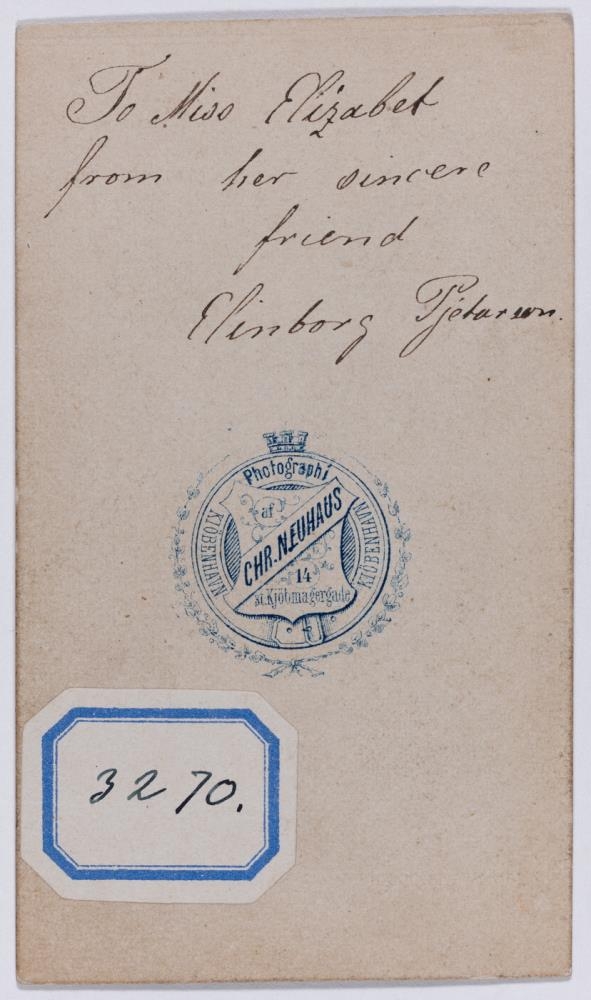 To Miss Elizabet
from her sincere
friend
Elinborg Pjetursson.
Photographi
af
CHR. NEUHAUS
14
St. Kjöbmagergade
KJÖBENHAVN
KJÖBENHAVN
3270.